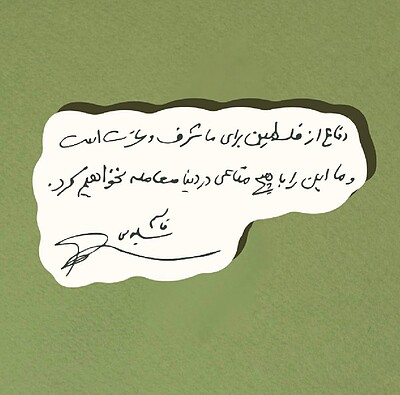 دفاع از فلسطین برای ما شرف و عزت است
و ما این را با هیچ متاعی در دنیا معامله نخواهیم کرد.
قاسم
سلیمانی